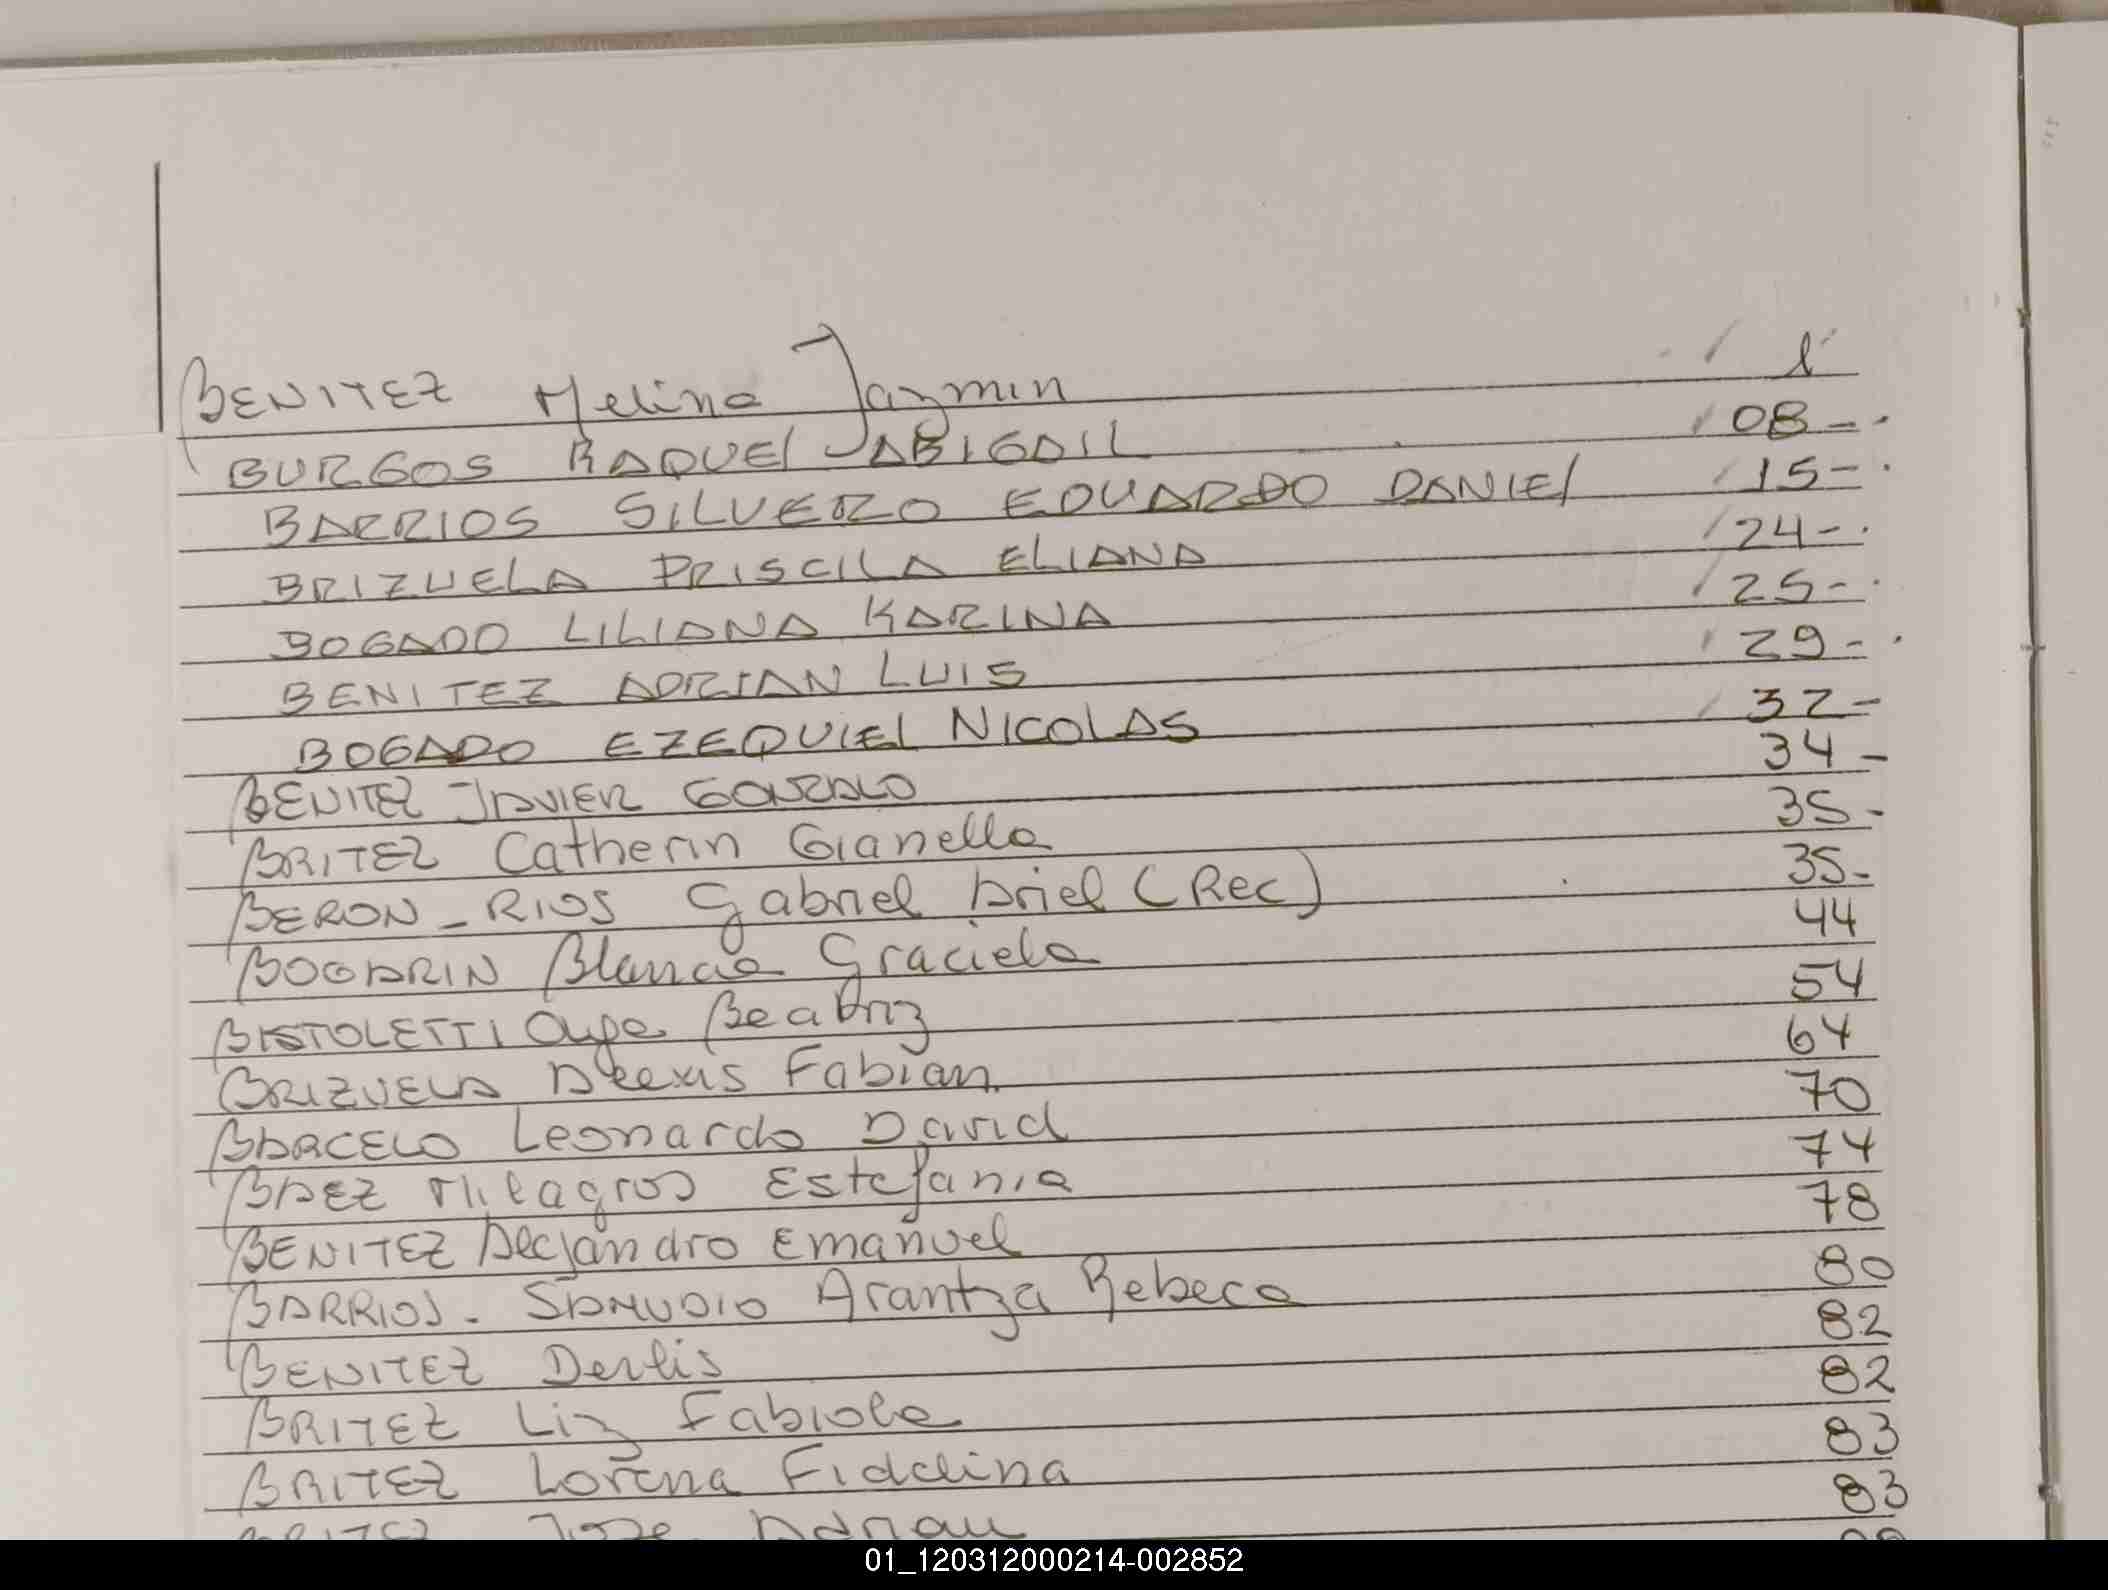 BENITEZ Melina Jazmin
BURGOS RAQUEL ABIGAIL 08-
BARRIOS SILVERO EDUARDO DANIEL 15-
BRIZUELA PRISCILA ELIANA 24-
BOGADO LILIANA KARINA 25-
BENITEZ ADRIAN LUIS 29-
BOGADO EZEQUIEL NICOLAS 32-
BENITEZ JAVIER GONZALO 34-
BRITEZ Catherin Gianella 35-
BERON-RIOS Gabriel Ariel (Rec) 35-
BOGARIN Blanca Graciela 44
BISTOLETTI Beatriz 54
BRIZUELA Alexis Fabian 64
BARCELO Leonardo David 70
BAEZ Milagros Estefania 74
BENITEZ Alejandro Emanuel 78
BARRIOS - SAMUDIO Arantza Rebeca 80
BENITEZ Derlis 82
BRITEZ Liz Fabiola 82
BRITEZ Lorena Fidelina 83
BRITEZ Jose Adrian 83
01_120312000214-002852